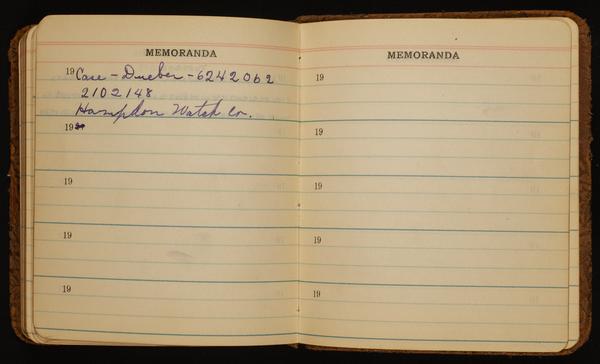 MEMORANDA
19 Case - Dueber - 6242062
2102148
Hampdon Watch Co.
19
19
19
19
MEMORANDA
19
19
19
19
19